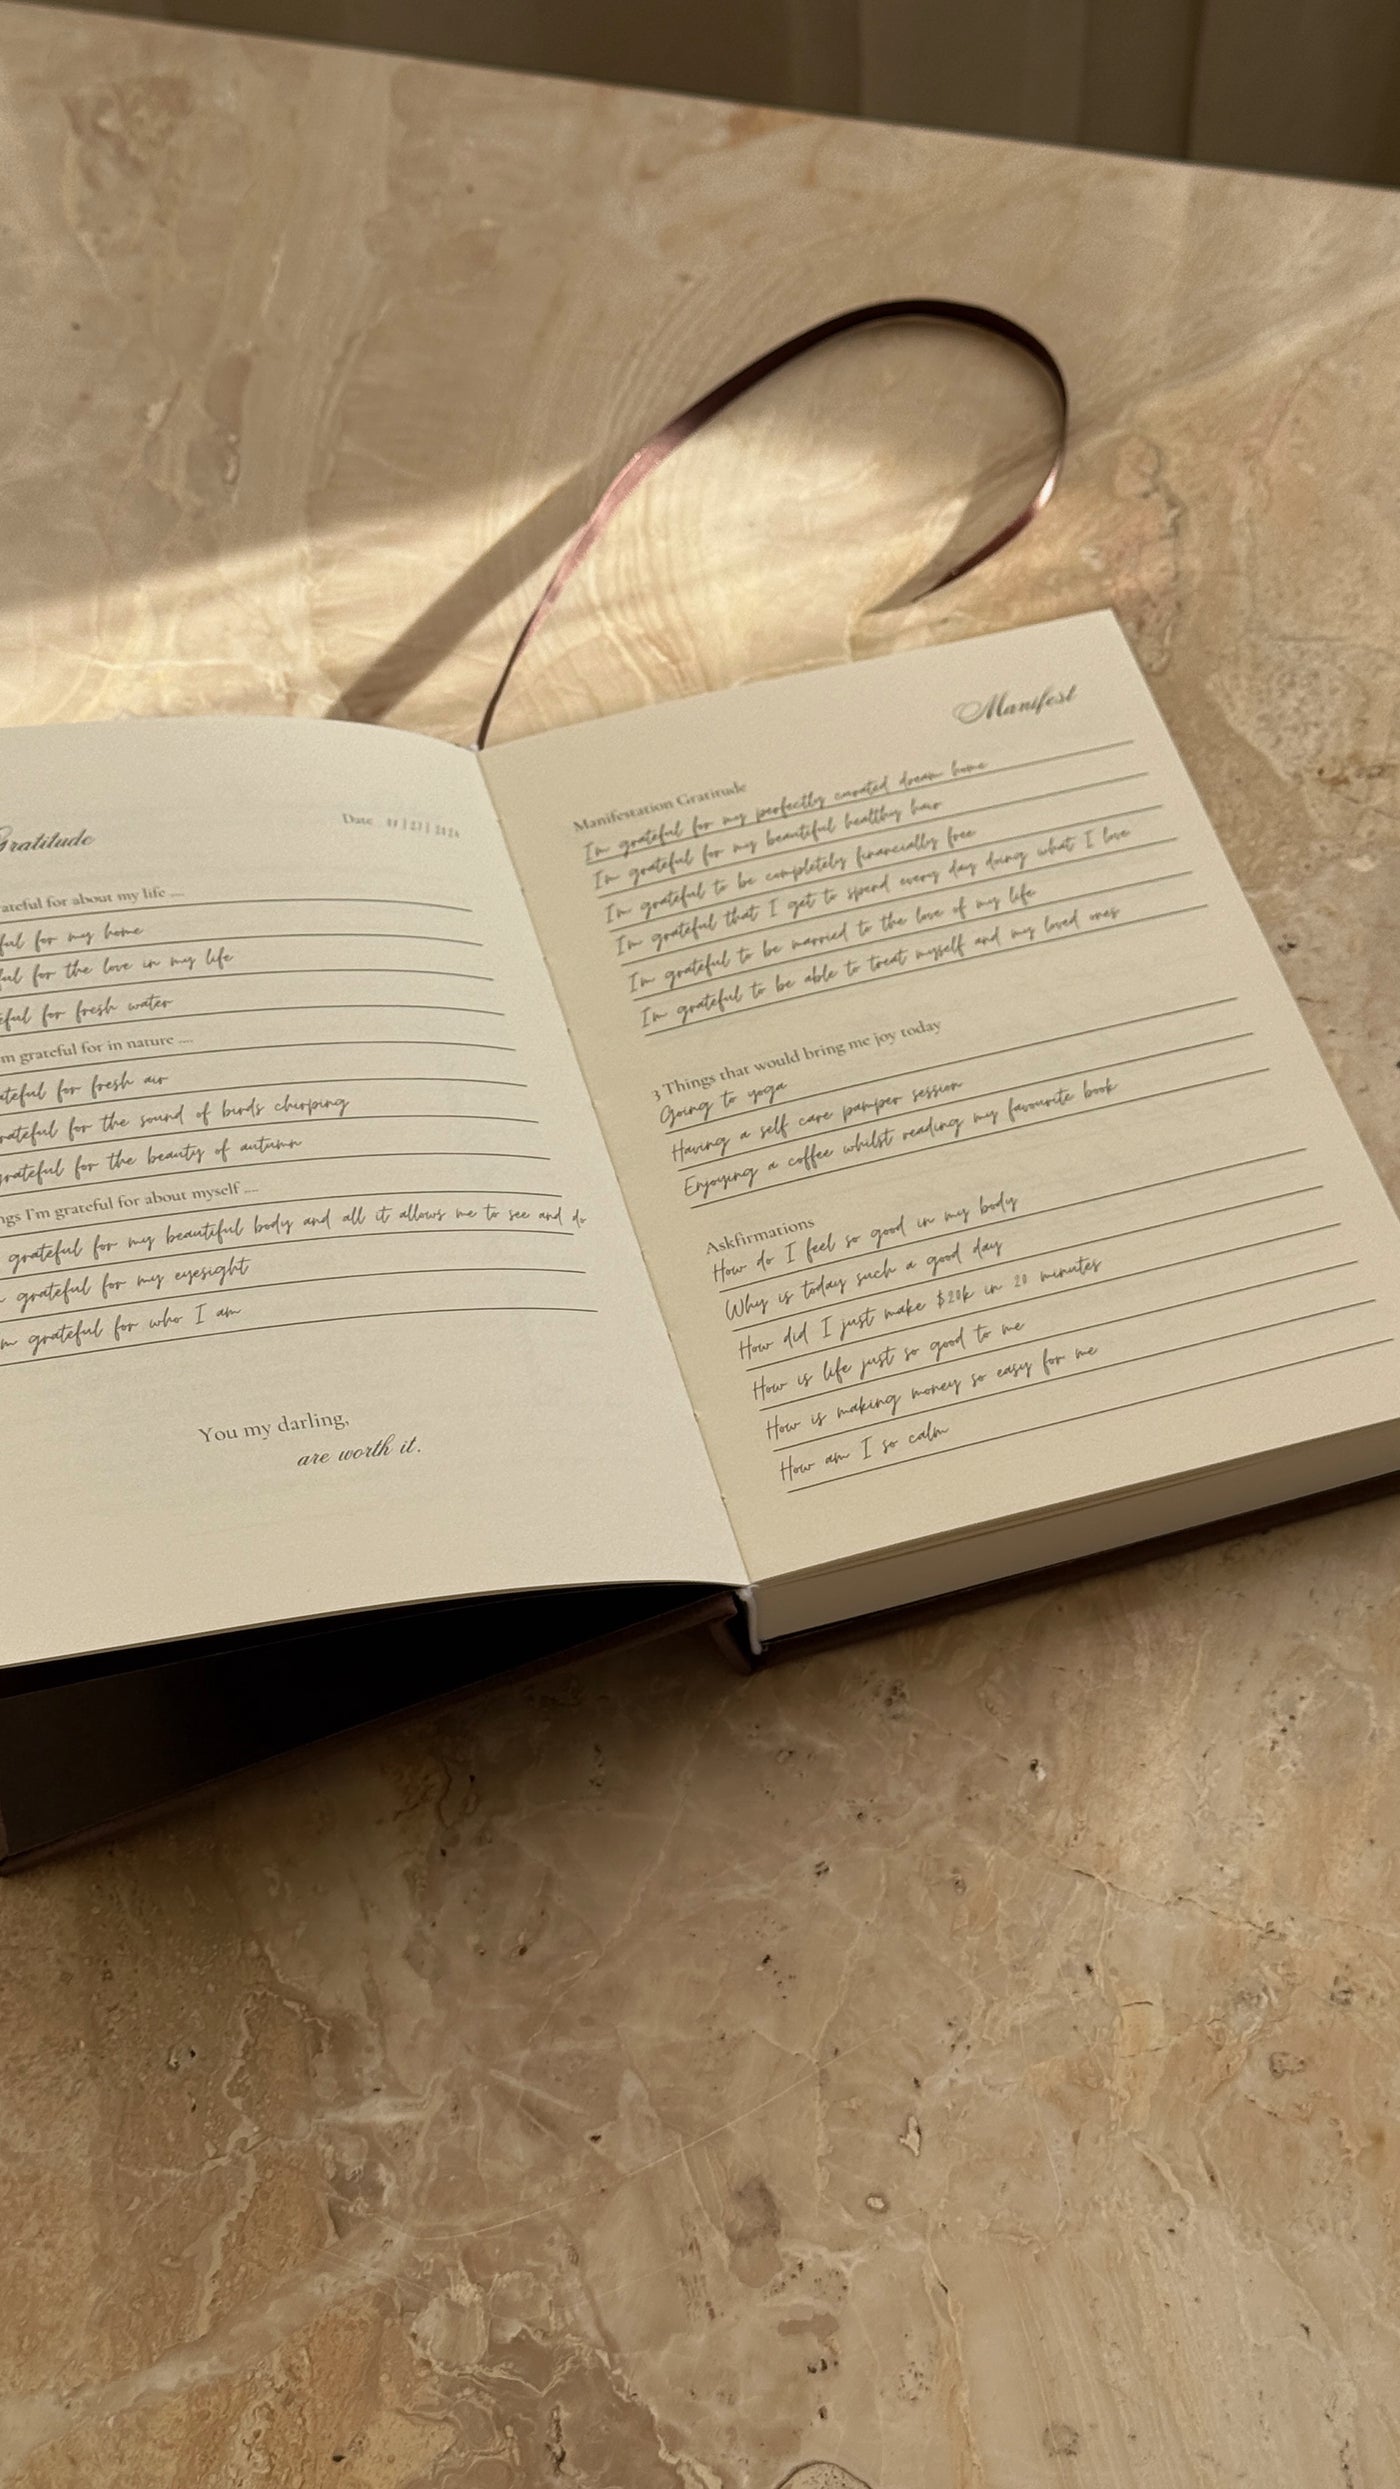 Gratitude
Date
ateful for about my life ....
ful for my home
ful for the love in my life
eful for fresh water
m grateful for in nature ....
ateful for fresh air
rateful for the sound of birds chirping
grateful for the beauty of autumn
ngs I'm grateful for about myself ....
grateful for my beautiful body and all it allows me to see and do
grateful for my eyesight
m grateful for who I am
You my darling,
are worth it.
Manifest
Manifestation Gratitude
I'm grateful for my perfectly curated dream home
I'm grateful for my beautiful healthy hair
I'm grateful to be completely financially free
I'm grateful that I get to spend every day doing what I love
I'm grateful to be married to the love of my life
I'm grateful to be able to treat myself and my loved ones
3 Things that would bring me joy today
Going to yoga
Having a self care pamper session
Enjoying a coffee whilst reading my favourite book
Askfirmations
How do I feel so good in my body
Why is today such a good day
How did I just make $20k in 20 minutes
How is life just so good to me
How is making money so easy for me
How am I so calm